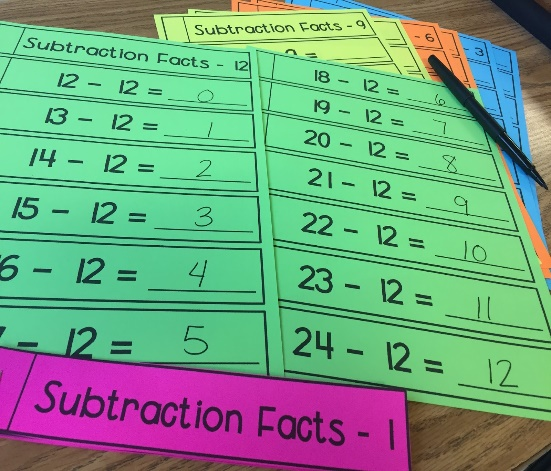 Subtraction Facts - 9
- 6
- 3
Subtraction Facts - 12
12 - 12 = 0
13 - 12 = 1
14 - 12 = 2
15 - 12 = 3
6 - 12 = 4
- 12 = 5
18 - 12 = 6
19 - 12 = 7
20 - 12 = 8
21 - 12 = 9
22 - 12 = 10
23 - 12 = 11
24 - 12 = 12
Subtraction Facts - 1